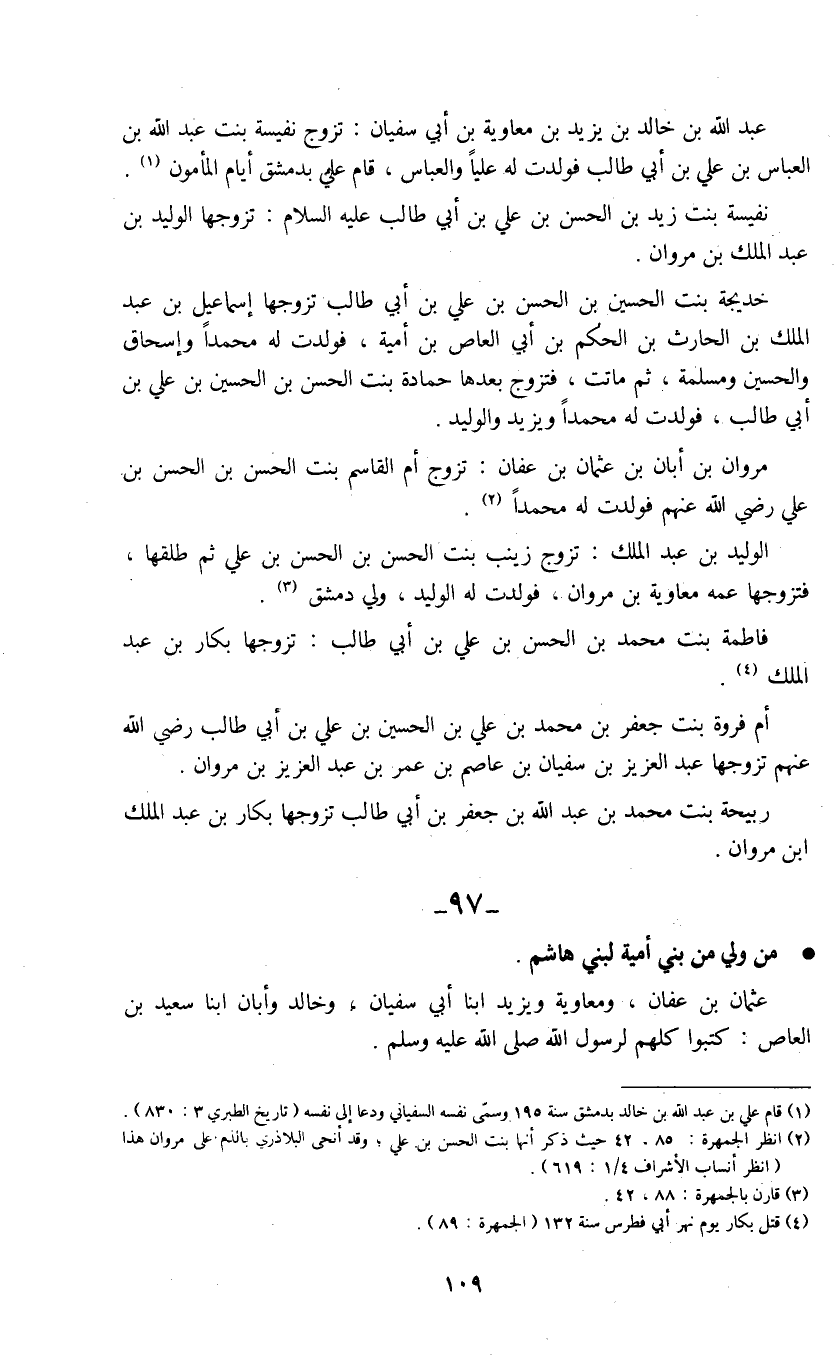 عبد الله بن خالد بن يزيد بن معاوية بن أبي سفيان : تزوج نفيسة بنت عبد الله بن
العباس بن علي بن أبي طالب فولدت له علياً والعباس ، قام علي بدمشق أيام المأمون (١) .
نفيسة بنت زيد بن الحسن بن علي بن أبي طالب عليه السلام : تزوجها الوليد بن
عبد الملك بن مروان .
خديجة بنت الحسين بن الحسن بن علي بن أبي طالب تزوجها إسماعيل بن عبد
الملك بن الحارث بن الحكم بن أبي العاص بن أمية ، فولدت له محمداً وإسحاق
والحسين ومسلمة ، ثم ماتت ، فتزوج بعدها حمادة بنت الحسن بن الحسين بن علي بن
أبي طالب ، فولدت له محمداً ويزيد والوليد .
مروان بن أبان بن عثمان بن عفان : تزوج أم القاسم بنت الحسن بن الحسن بن
علي رضي الله عنهم فولدت له محمداً (٢) .
الوليد بن عبد الملك : تزوج زينب بنت الحسن بن الحسن بن علي ثم طلقها ،
فتزوجها عمه معاوية بن مروان ، فولدت له الوليد ، ولي دمشق (٣) .
فاطمة بنت محمد بن الحسن بن علي بن أبي طالب : تزوجها بكار بن عبد
الملك (٤) .
أم فروة بنت جعفر بن محمد بن علي بن الحسين بن علي بن أبي طالب رضي الله
عنهم تزوجها عبد العزيز بن سفيان بن عاصم بن عمر بن عبد العزيز بن مروان .
ربيحة بنت محمد بن عبد الله بن جعفر بن أبي طالب تزوجها بكار بن عبد الملك
ابن مروان .
-٩٧-
● من ولي من بني أمية لبني هاشم .
عثمان بن عفان ، ومعاوية ويزيد ابنا أبي سفيان ، وخالد وأبان ابنا سعيد بن
العاص : كتبوا كلهم لرسول الله صلى الله عليه وسلم .
(١) قام علي بن عبد الله بن خالد بدمشق سنة ١٩٥ وسمّى نفسه السفياني ودعا إلى نفسه ( تاريخ الطبري ٣ : ٨٣٠ ) .
(٢) انظر الجمهرة : ٨٥ ، ٤٢ حيث ذكر أنها بنت الحسن بن علي ؛ وقد أنحى البلاذري بالذم على مروان هذا
( انظر أنساب الأشراف ١/٤ : ٦١٩ ) .
(٣) قارن بالجمهرة : ٨٨ ، ٤٢ .
(٤) قتل بكار يوم نهر أبي فطرس سنة ١٣٢ ( الجمهرة : ٨٩ ) .
١٠٩